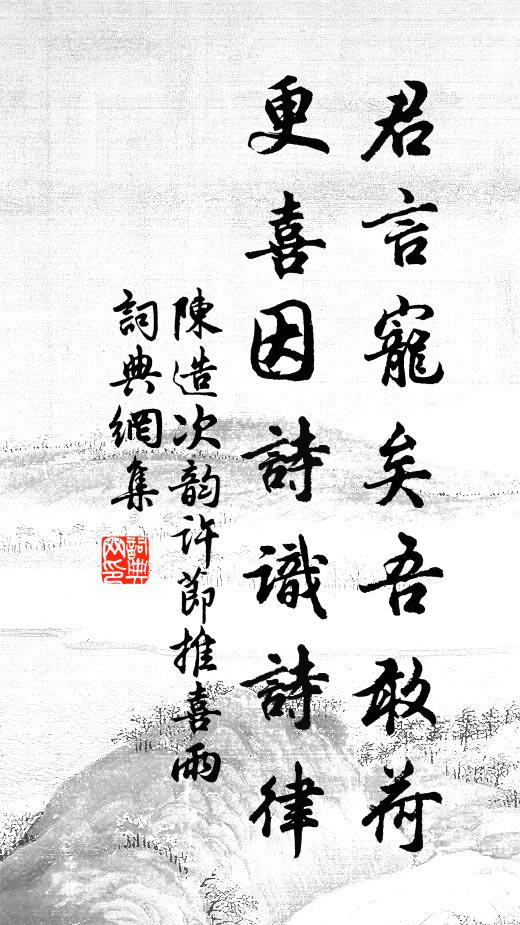 君言寵矣吾敢荷
更喜因詩識詩律
陳造次韵許節推喜雨
詞典網集
詞典網印